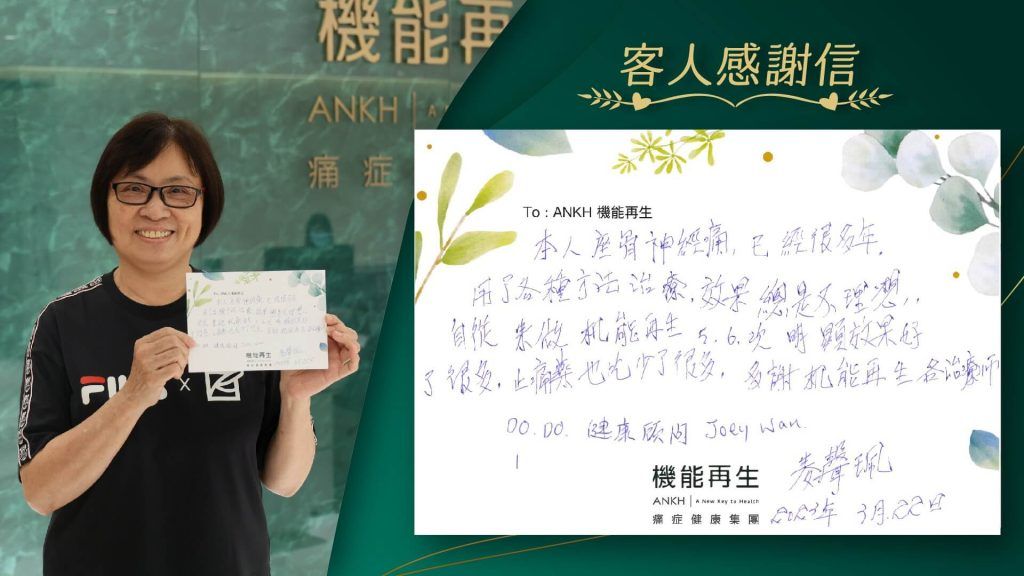 機能再
ANKH | A
痛症
FILA
客人感謝信
To : ANKH 機能再生
本人座骨神經痛,已經很多年,
用了各種方法治療,效果總是不理想,,
自從來做机能再生5.6.次明顯效果好
了很多,止痛藥也少了很多,多謝机能再生各治療師
DO. DO. 健康顾问 Joey Wan.
機能再生
ANKH | A New Key to Health
痛症健康集團
2023年 3月.22日